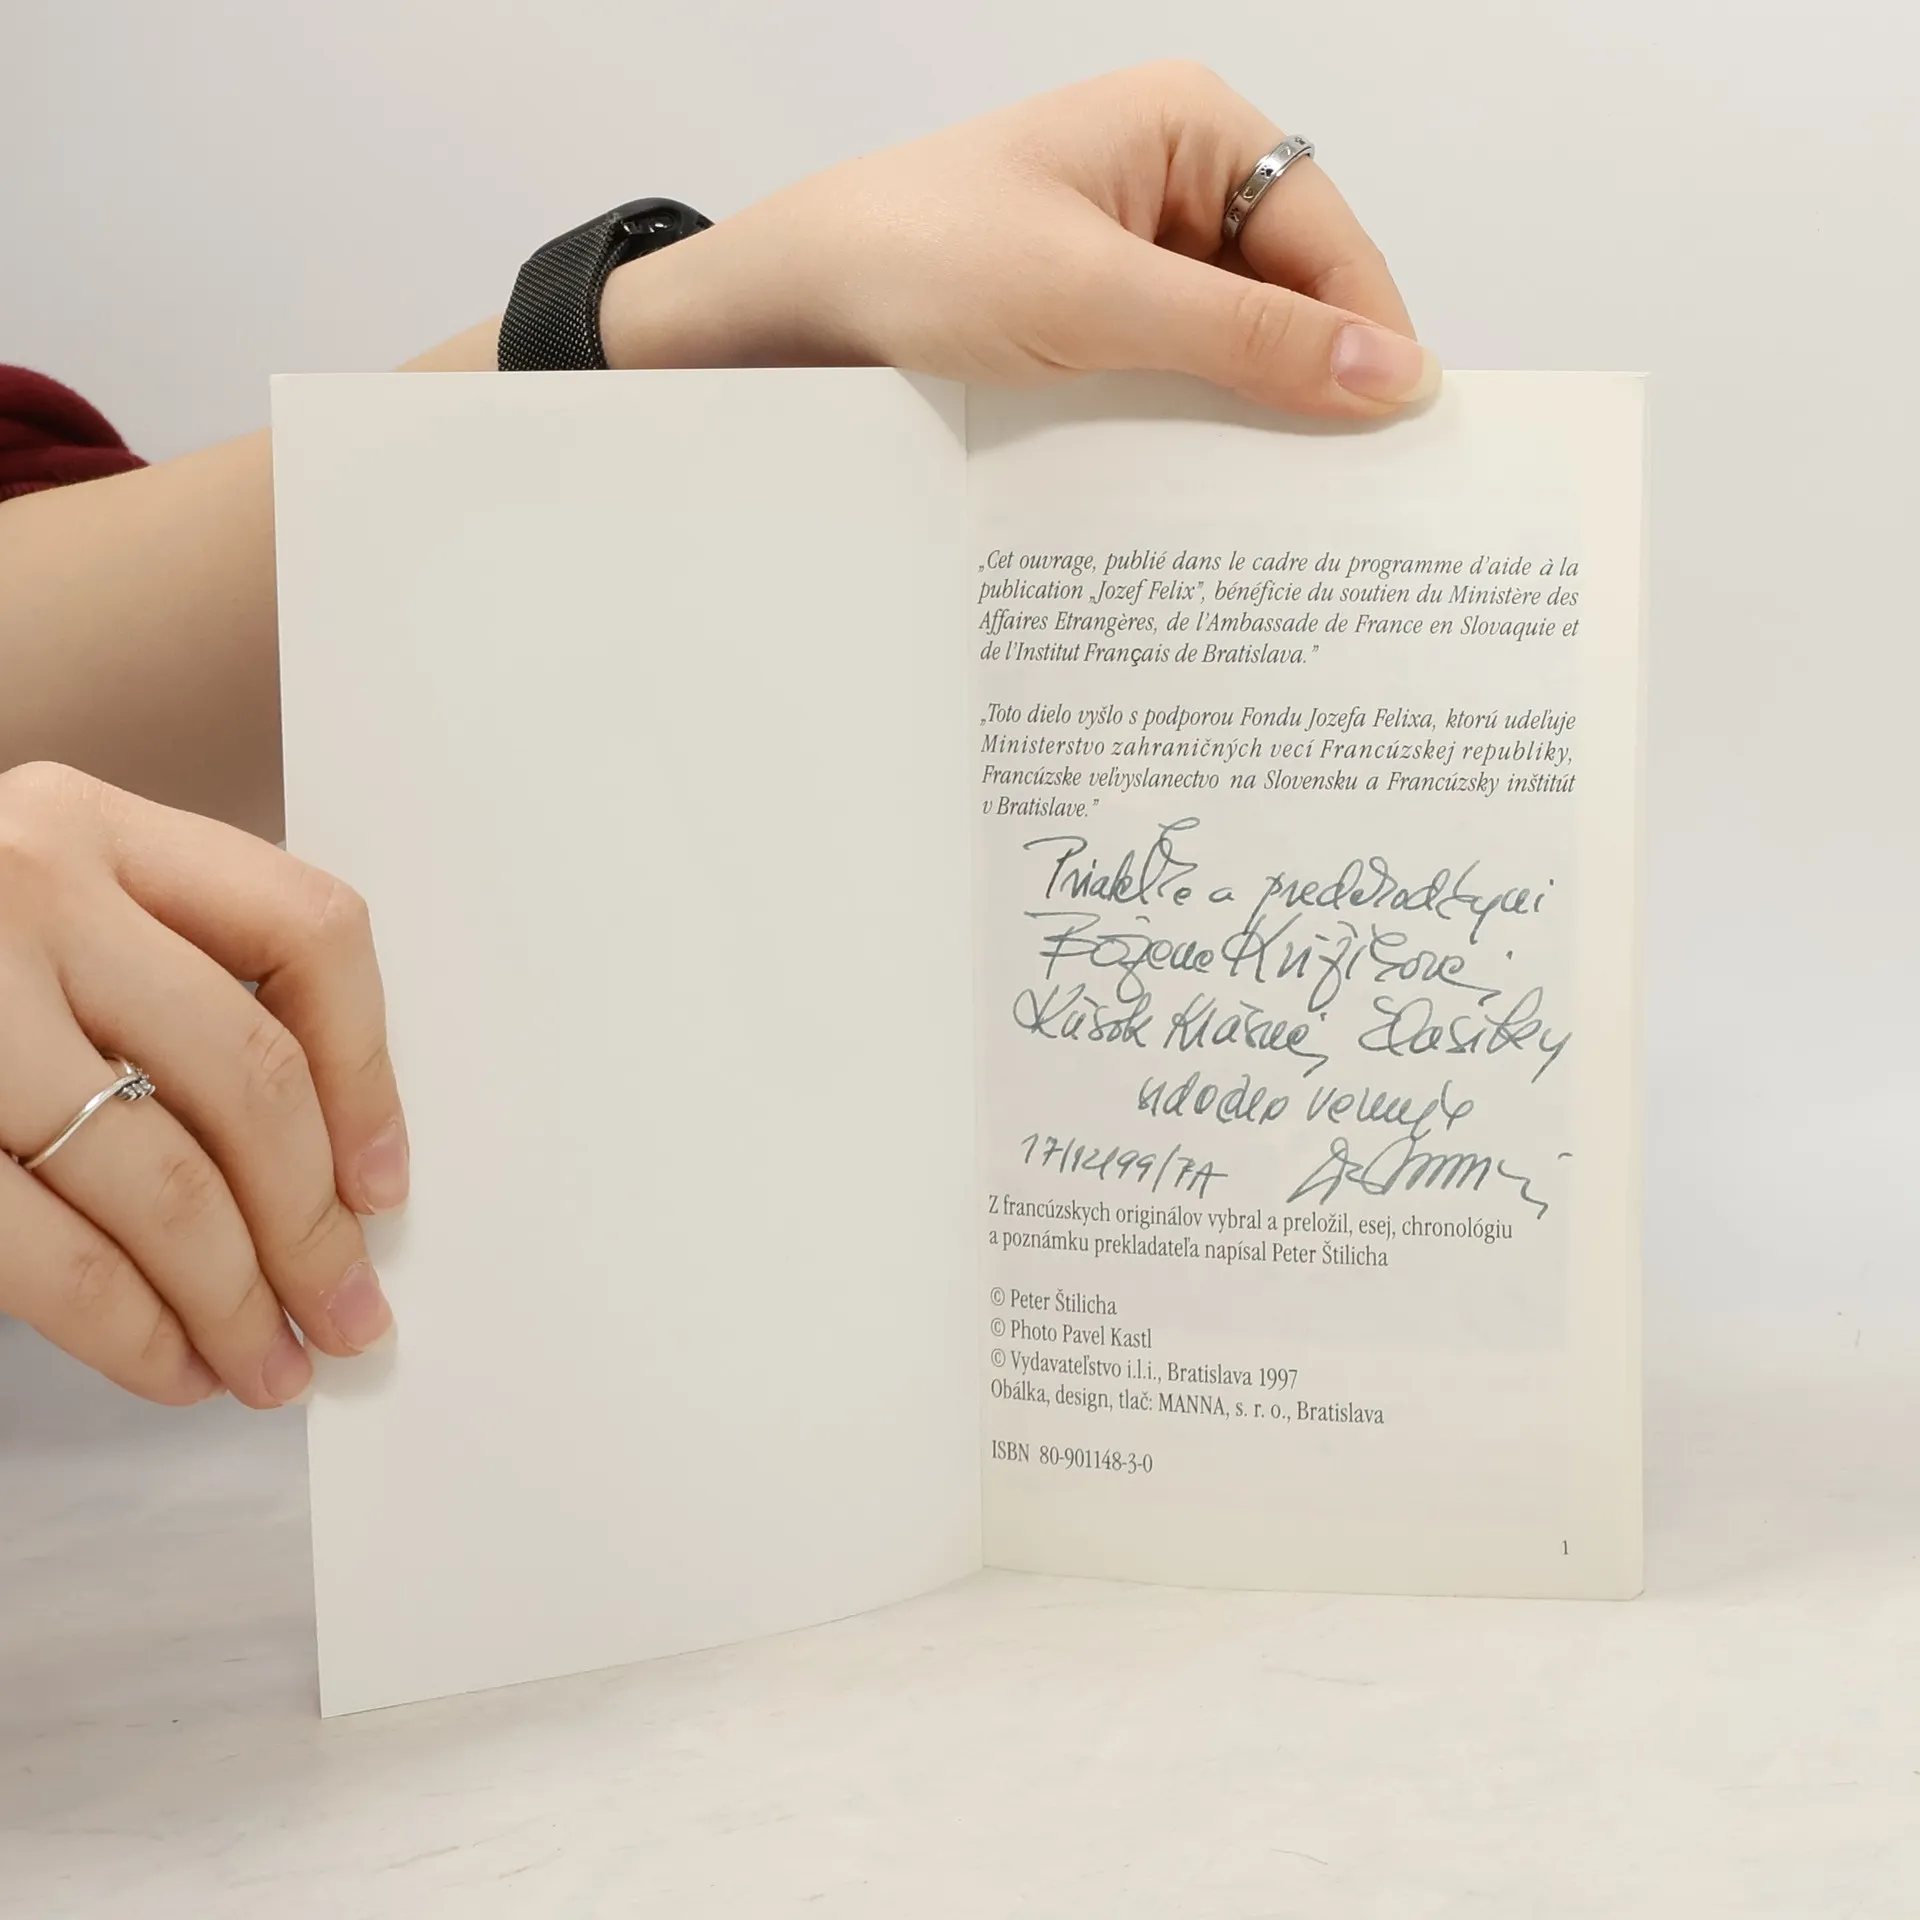 „Cet ouvrage, publié dans le cadre du programme d'aide à la
publication „Jozef Felix”, bénéficie du soutien du Ministère des
Affaires Etrangères, de l'Ambassade de France en Slovaquie et
de l'Institut Français de Bratislava.”
„Toto dielo vyšlo s podporou Fondu Jozefa Felixa, ktorú udeľuje
Ministerstvo zahraničných vecí Francúzskej republiky,
Francúzske veľvyslanectvo na Slovensku a Francúzsky inštitút
v Bratislave.”
a
Kúsok krásnej klasiky
venuje
17/12/99/7A
Z francúzskych originálov vybral a preložil, esej, chronológiu
a poznámku prekladateľa napísal Peter Štilicha
© Peter Štilicha
© Photo Pavel Kastl
© Vydavateľstvo i.l.i., Bratislava 1997
Obálka, design, tlač: MANNA, s. r. o., Bratislava
ISBN 80-901148-3-0
1